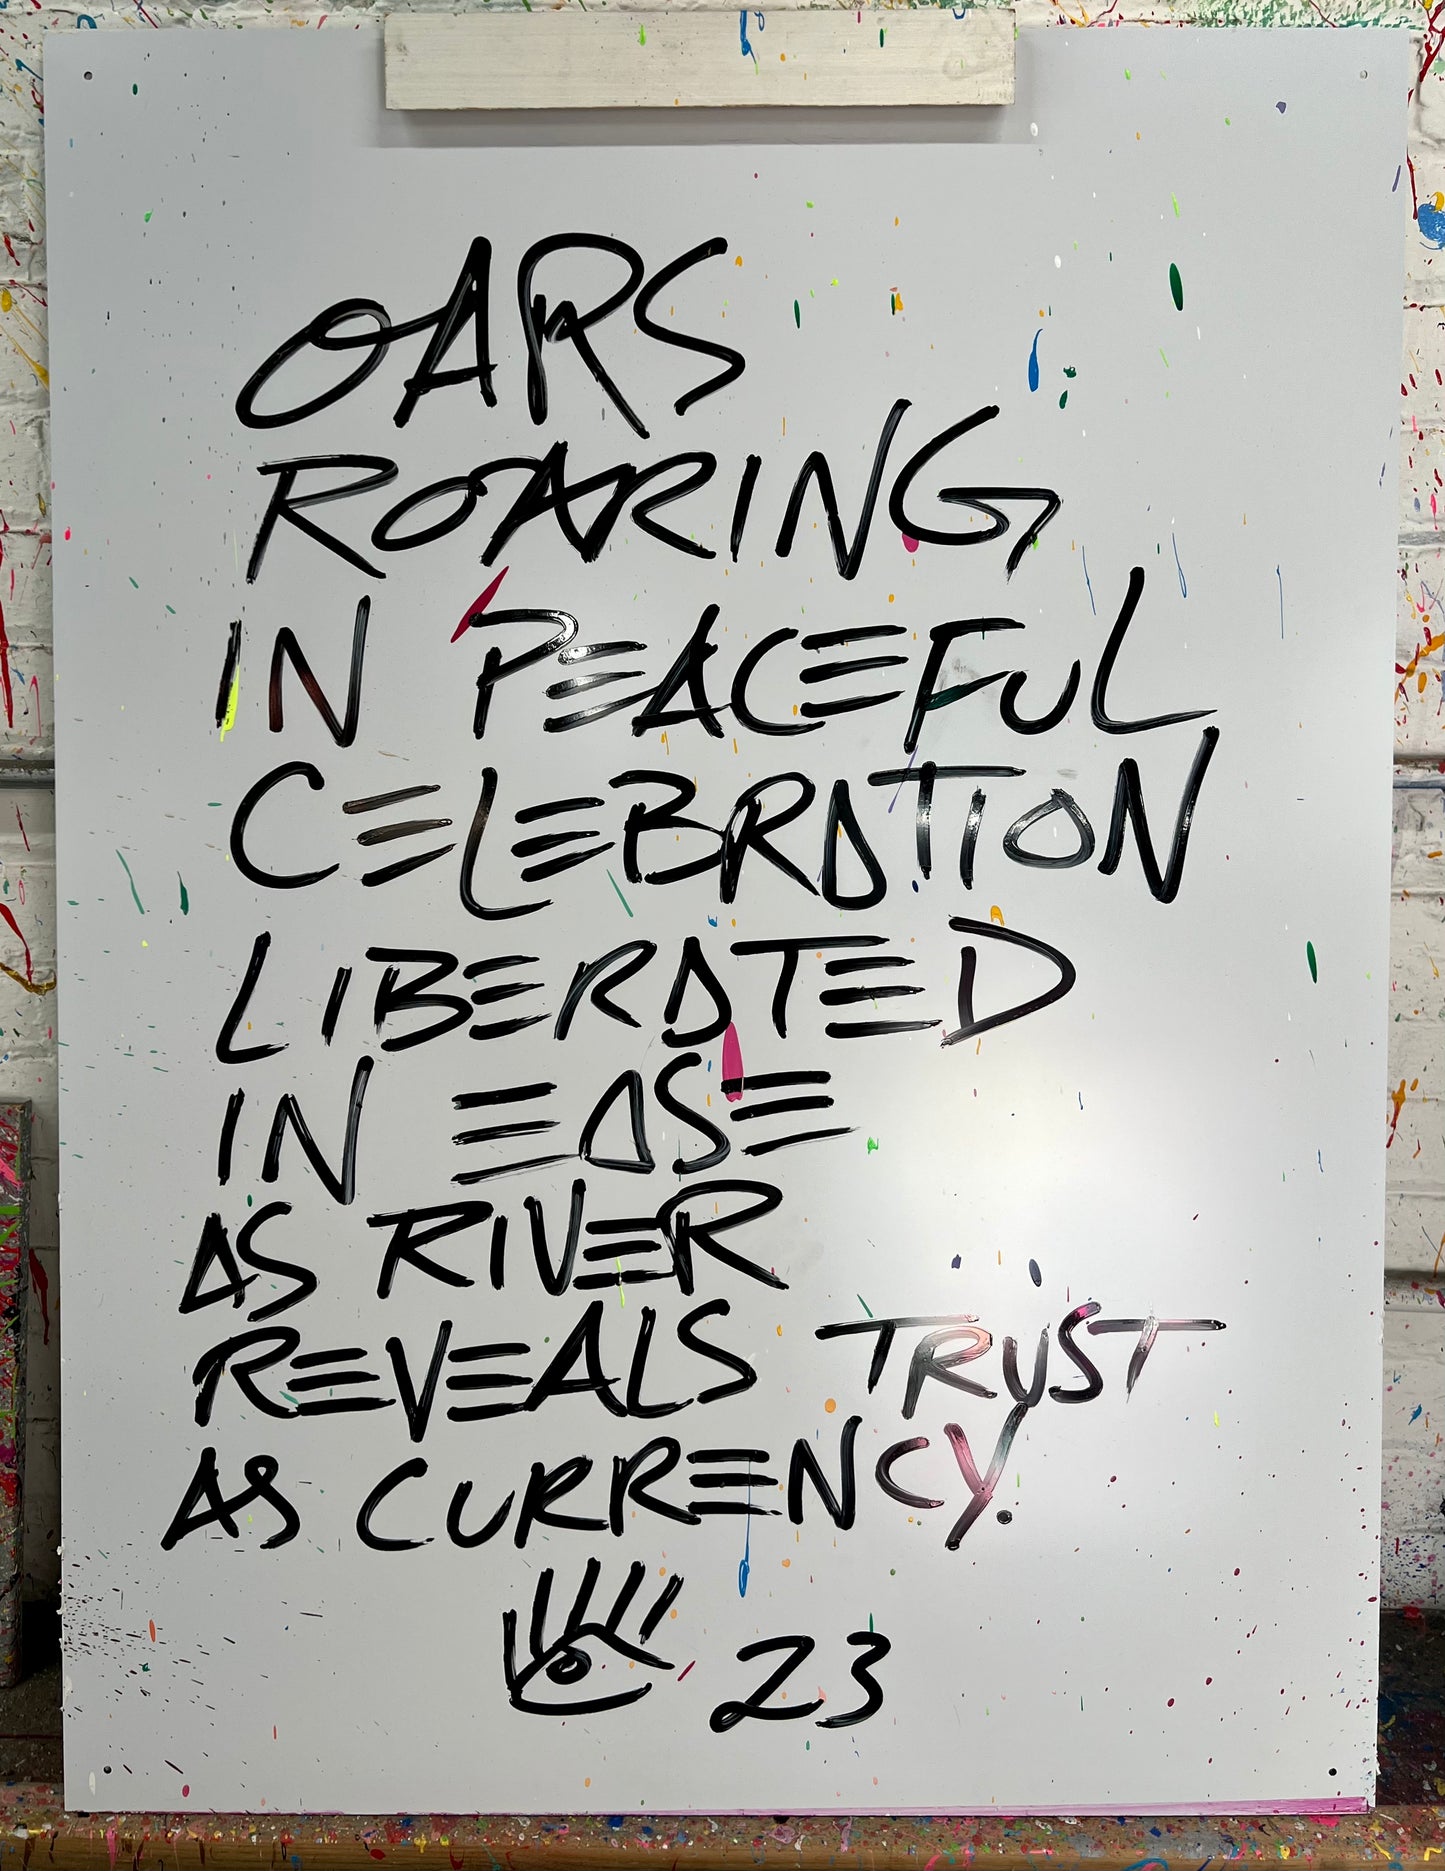 OARS
ROARING
IN PEACEFUL
CELEBRATION
LIBERATED
IN EASE
AS RIVER
REVEALS TRUST
AS CURRENCY.
23